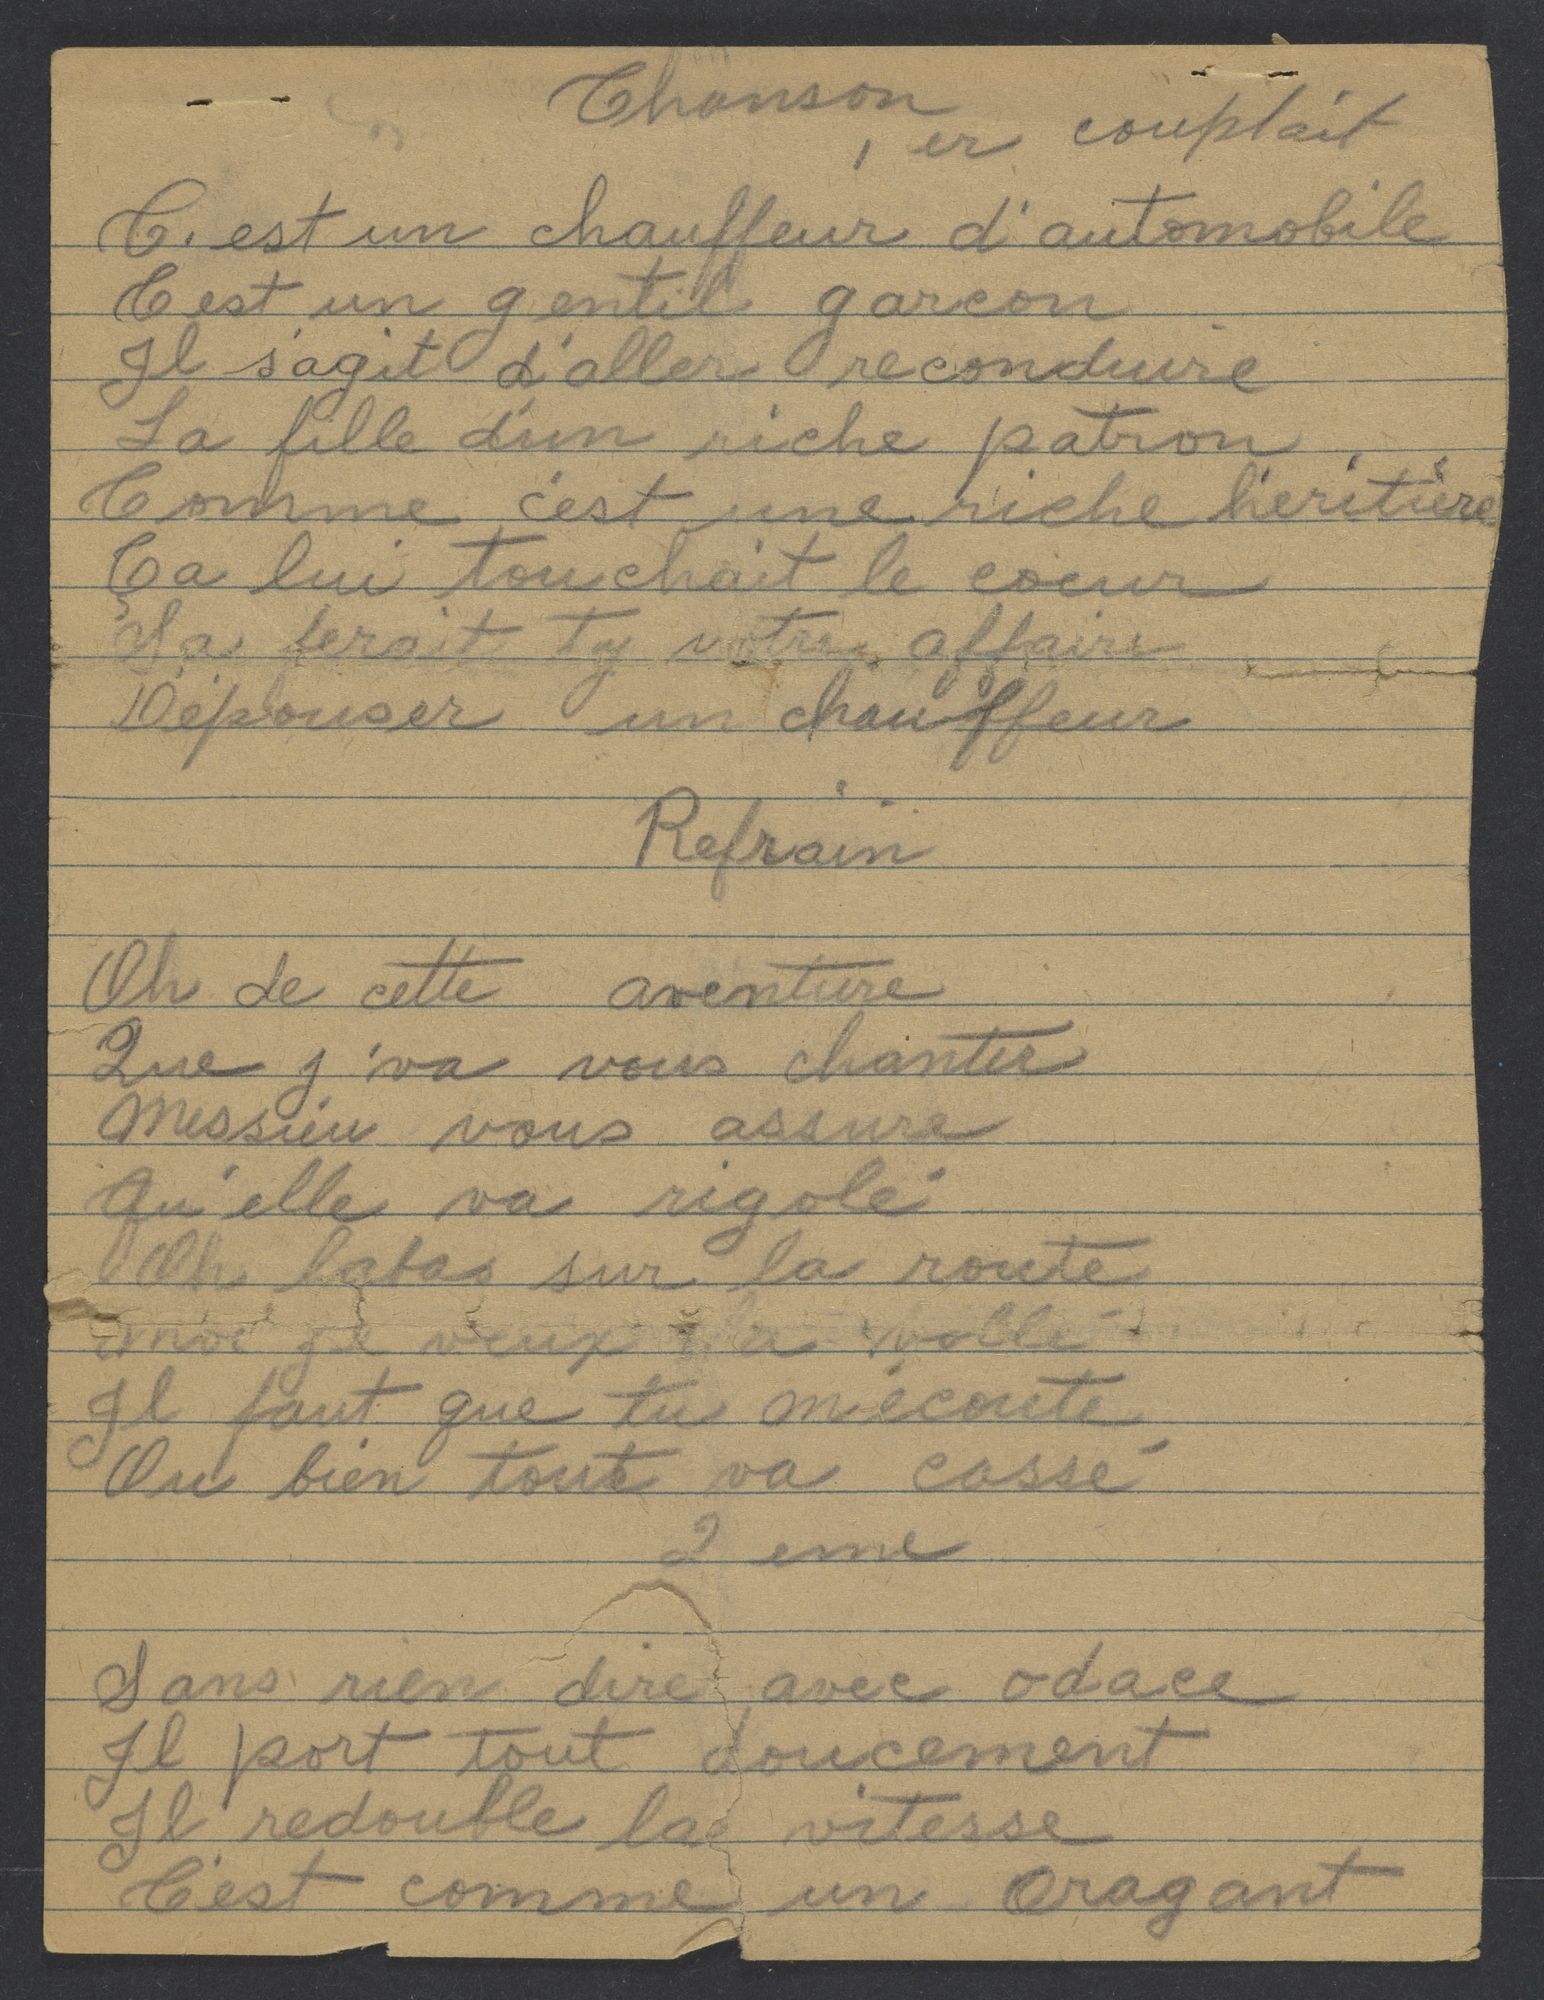 Chanson
1 er couplait
C'est un chauffeur d'automobile
C'est un gentil garcon
Il s'agit d'aller reconduire
La fille d'un riche patron
Comme c'est une riche héritière
Ca lui touchait le coeur
Sa ferait ty votre affaire
D'épouser un chauffeur
Refrain
Oh de cette aventure
Que j'va vous chanter
Messieu vous assure
Qu'elle va rigolé
Oh labas sur la route
moi je veux la vollé
Il faut que tu m'écoute
Ou bien tout va cassé
2 eme
Sans rien dire avec odace
Il part tout doucement
Il redouble la vitesse
C'est comme un oragant